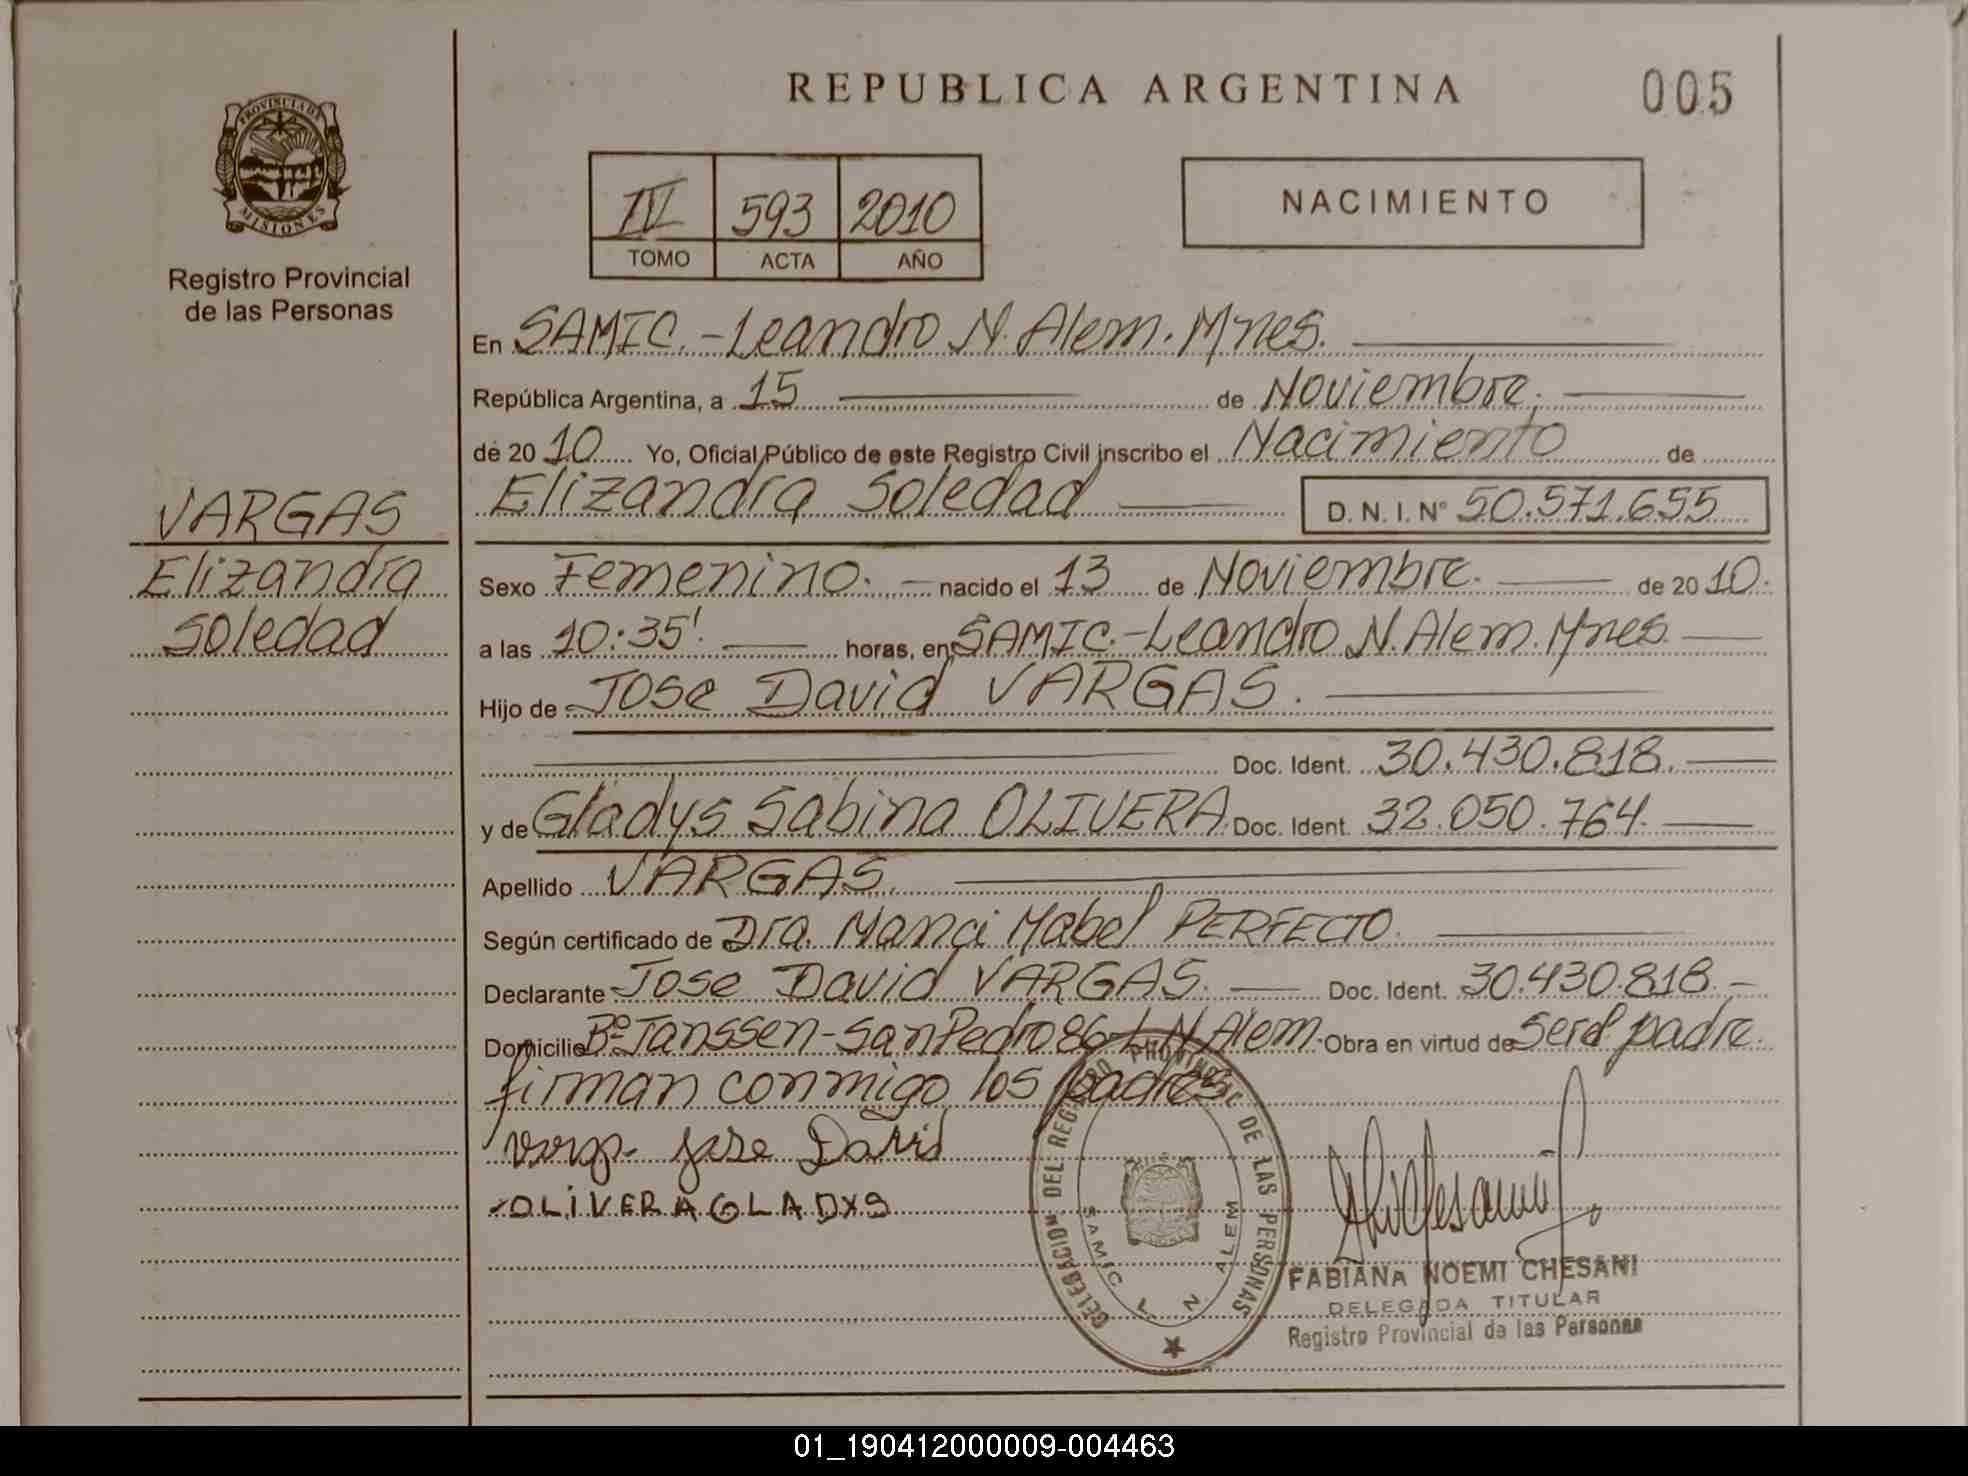 REPUBLICA ARGENTINA
005
PROVINCIA DE
MISIONES
Registro Provincial
de las Personas
IV 593 2010
TOMO ACTA AÑO
NACIMIENTO
En SAMIC.-Leandro N. Alem. Mnes.
República Argentina, a 15 de Noviembre.
de 2010 Yo, Oficial Público de este Registro Civil inscribo el Nacimiento de
Elizandra Soledad D. N. I. N° 50.571.655
VARGAS
Elizandra
Soledad
Sexo Femenino. nacido el 13 de Noviembre. de 2010.
a las 10:35'. horas, en SAMIC.-Leandro N. Alem. Mnes.
Hijo de Jose David VARGAS.
Doc. Ident. 30.430.818.
y de Gladys Sabina OLIVERA. Doc. Ident. 32.050.764.
Apellido VARGAS.
Según certificado de Dra. Manci Mabel PERFECTO.
Declarante Jose David VARGAS. Doc. Ident. 30.430.818.
Domicilio Bº Janssen-San Pedro 86-L.N. Alem. Obra en virtud de ser el padre.
firman conmigo los padres
Jose David
OLIVERA GLADYS
DELEGACION DEL REGISTRO PROVINCIAL DE LAS PERSONAS
SAMIC L. N. ALEM
FABIANA NOEMI CHESANI
DELEGADA TITULAR
Registro Provincial de las Personas
01_190412000009-004463